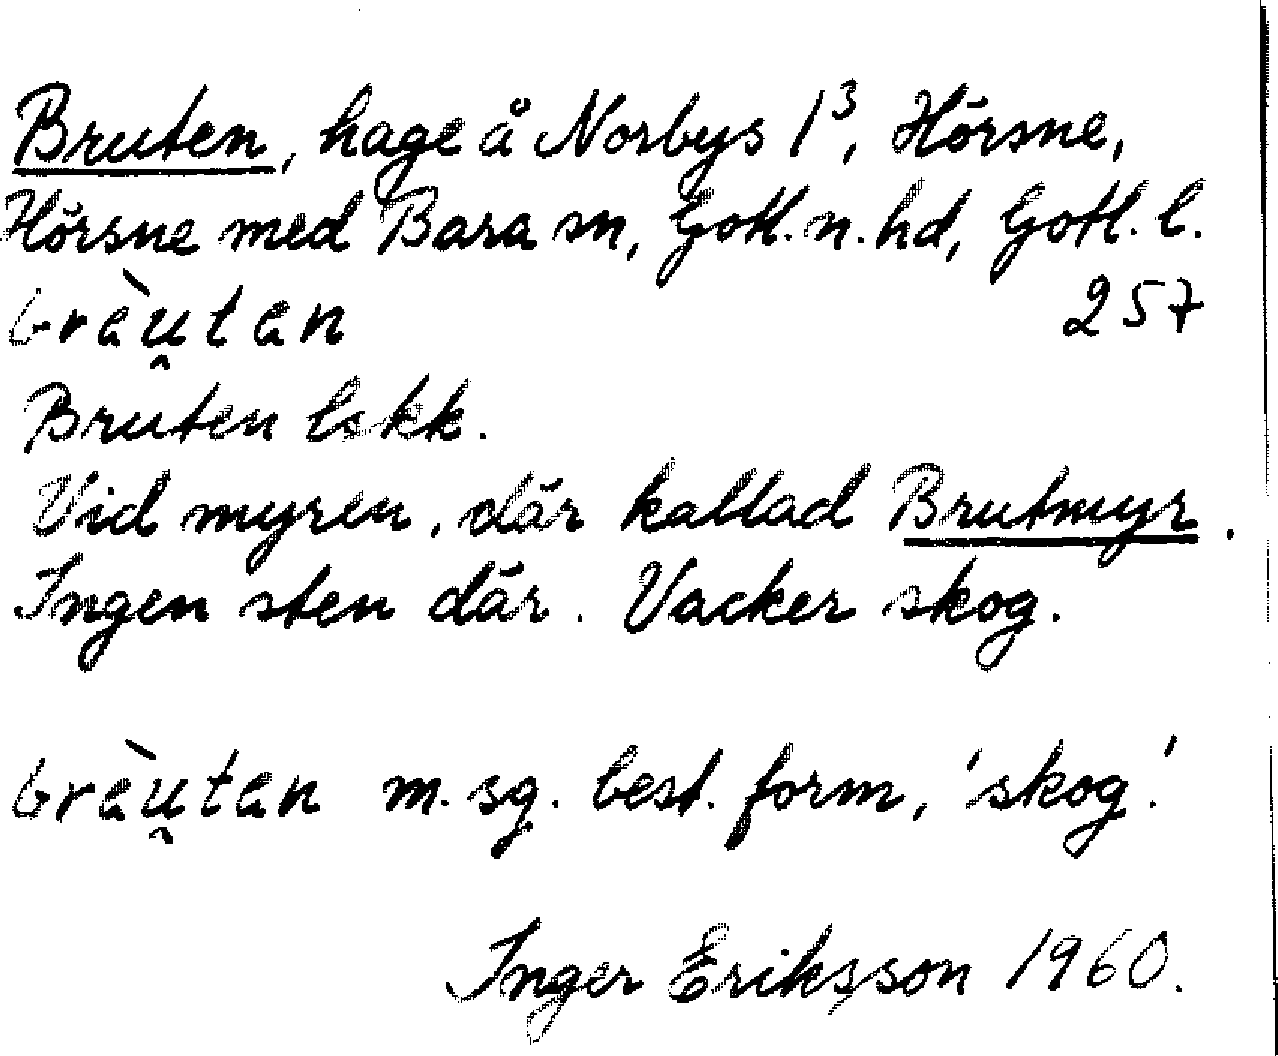 Bruten, hage å Norbys 1³, Hörsne,
Hörsne med Bara sn, Gotl. n. hd, Gotl. l.
brèu̯tən 257
Bruten lskk.
Vid myren, där kallad Brutmyr.
Ingen sten där. Vacker skog.
brèu̯tən m. sg. best. form, 'skog'.
Inger Eriksson 1960.